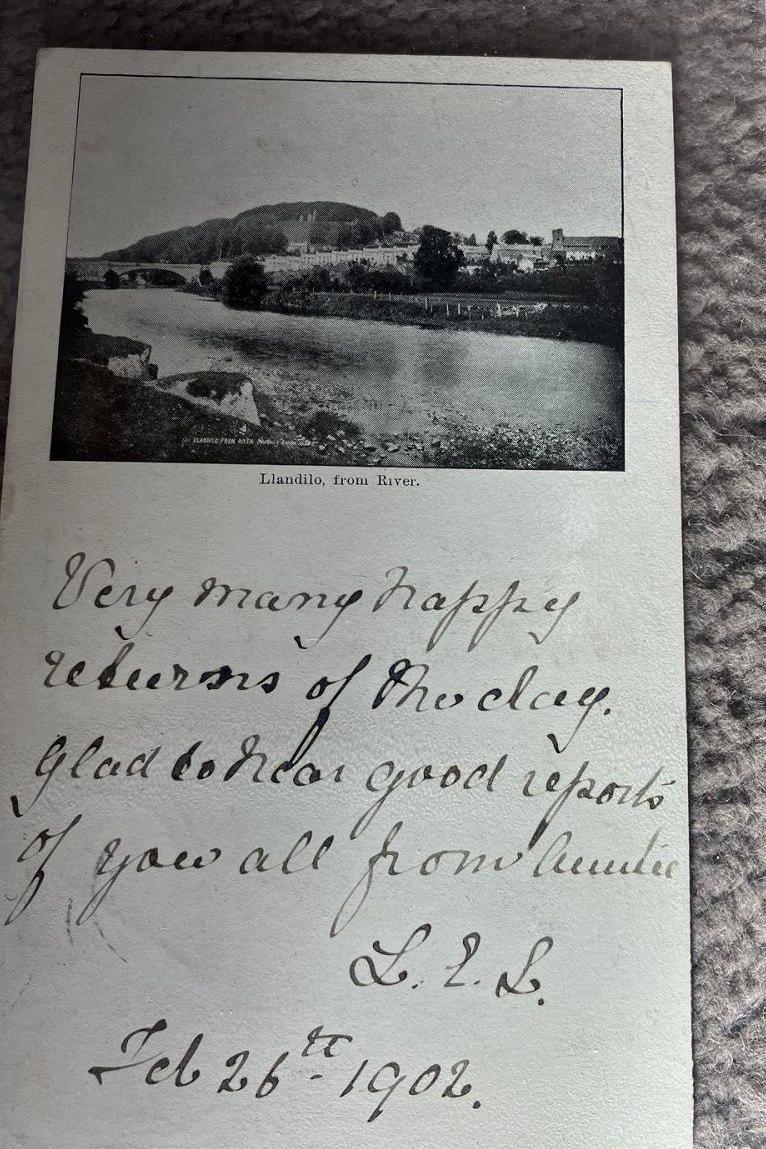 LLANDILO FROM RIVER.
Llandilo, from River.
Very many happy
returns of the day.
Glad to hear good reports
of you all from Auntie
L. E. L.
Feb 26th 1902.